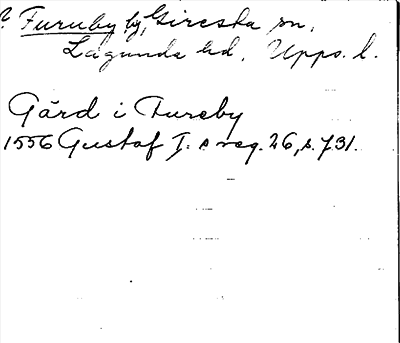 ? Furuby by, Giresta sn,
Lagunda hd, Upps. l.
Gård i Fureby
1556 Gustaf I. s reg. 26, s. 731.